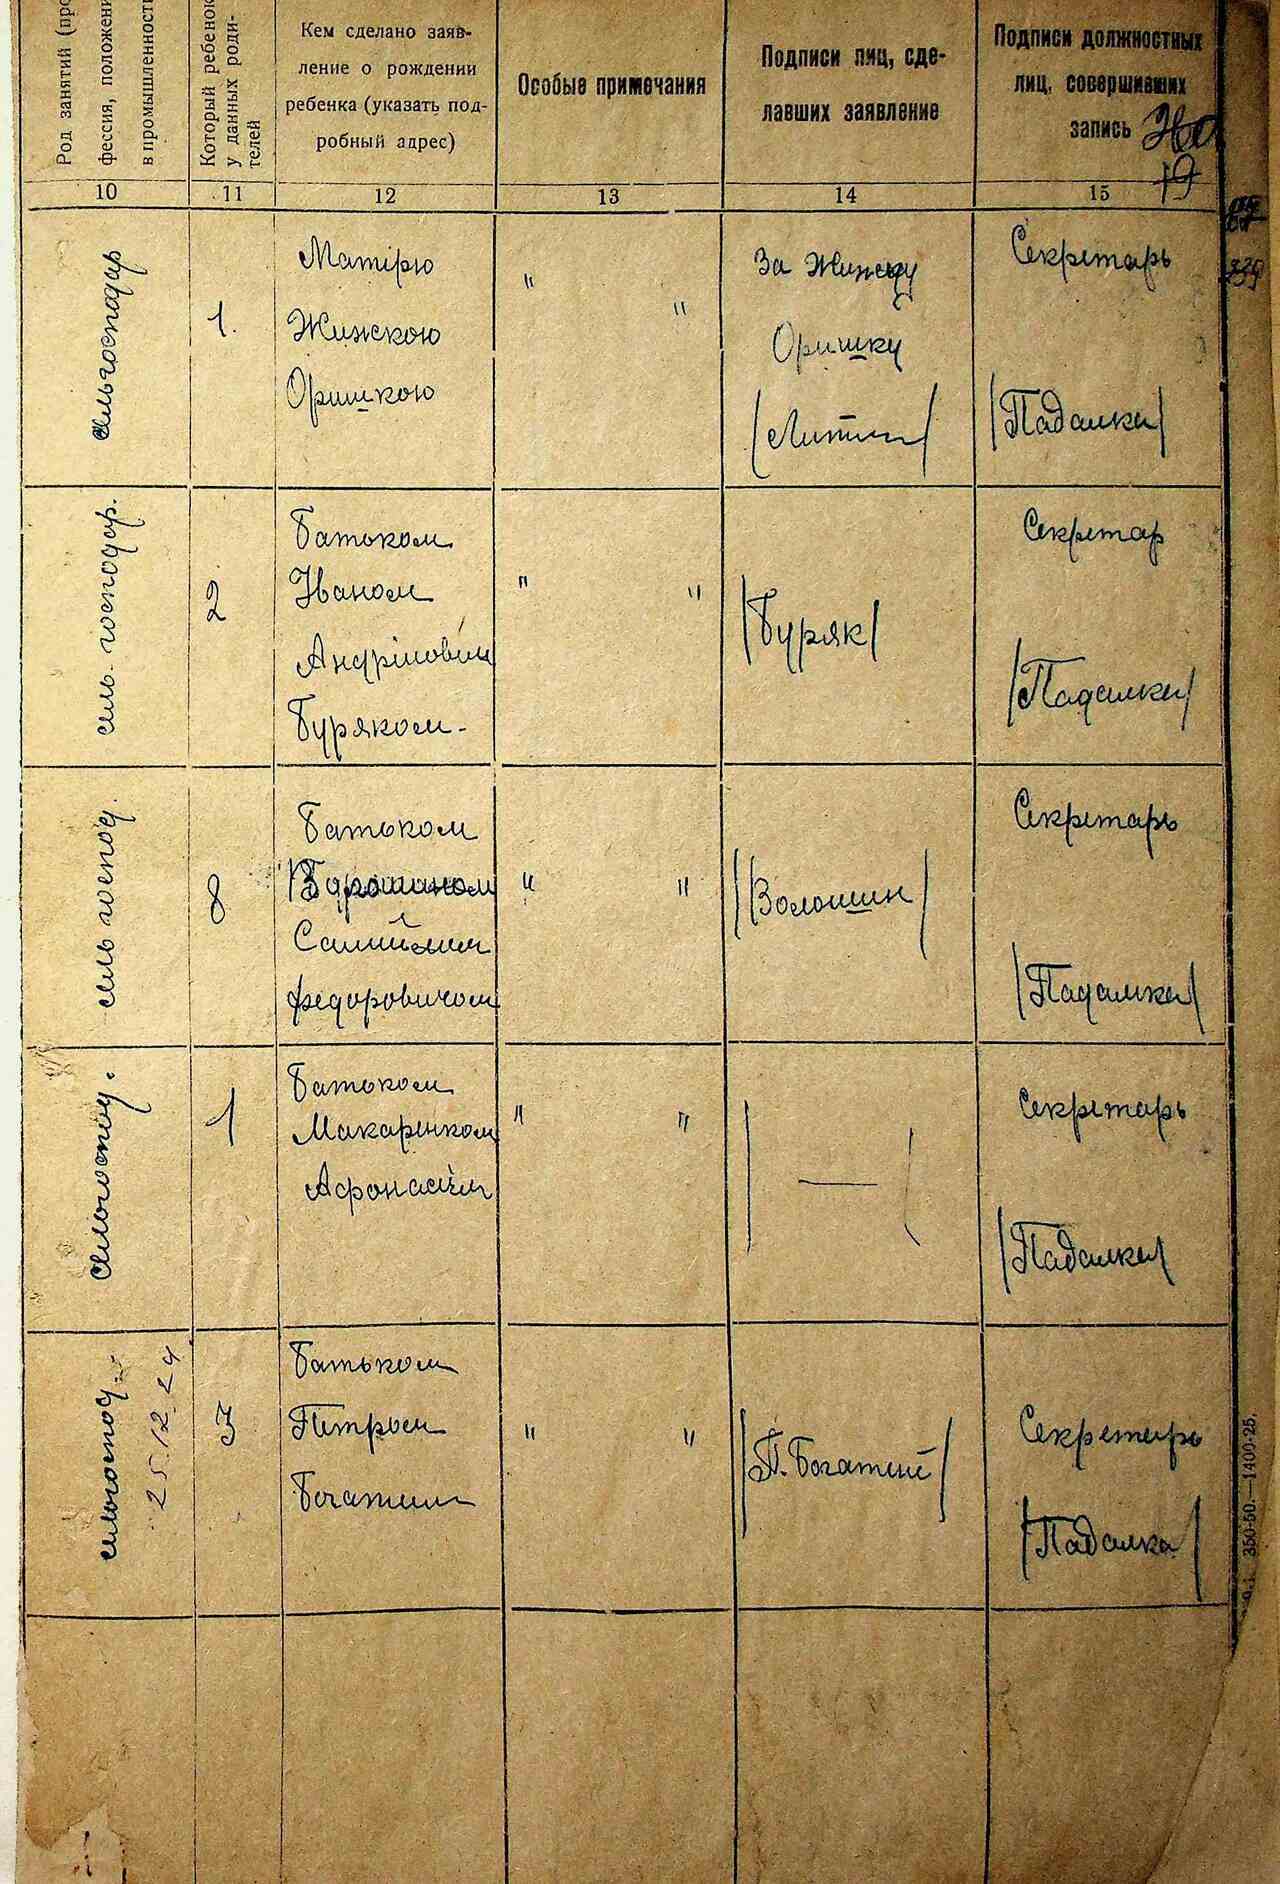 Род занятий (про-
фессия, положени
в промышленност
Который ребенок
у данных роди-
телей
Кем сделано заяв-
ление о рождении
ребенка (указать под-
робный адрес)
Особые примечания
Подписи лиц, сде-
лавших заявление
Подписи должностных
лиц, совершивших
запись
19
10
11
12
13
14
15
сільгосподар
1.
Матірю
Жинскою
Оришкою
" "
За Жинску
Оришку
/Литвин/
Секретарь
/Падалка/
сіль. господар.
2
Батьком
Іваном
Андріиовим
Буряком-
" "
/Буряк/
Секретар
/Падалка/
сіль господ.
8
Батьком
Самійлом
Федоровичом
" "
/Волошин/
Секретарь
/Падалка/
сільгоспод.
1
Батьком
Макаренком
Афонасієм
" "
/ — /
Секретарь
/Падалка/
сільгоспод.
25.12.24
3
Батьком
Петром
Богатим
" "
/П. Богатий/
Секретарь
/Падалка/
350-50.—1400-25.